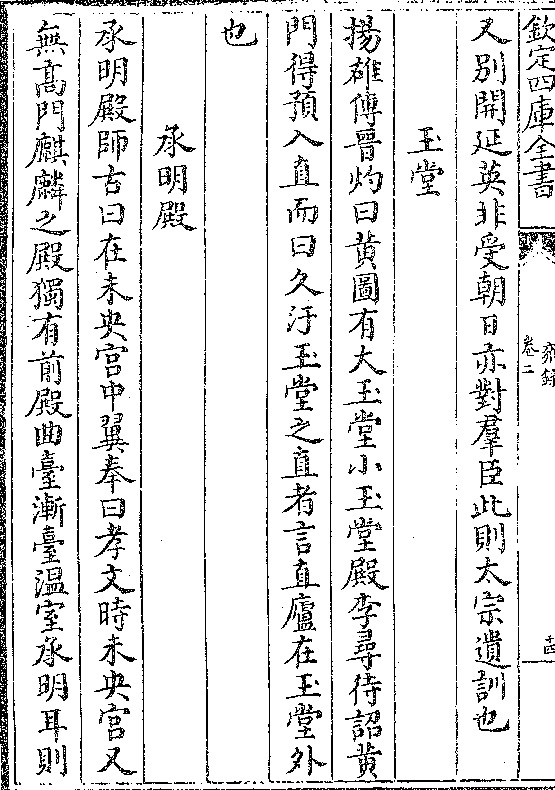 欽定四庫全書
雍錄
卷二
十四
又別開延英非受朝日亦對羣臣此則太宗遺訓也
玉堂
揚雄傳晉灼曰黃圖有大玉堂小玉堂殿李尋待詔黃
門得預入直而曰久汙玉堂之直者言直廬在玉堂外
也
承明殿
承明殿師古曰在未央宮中翼奉曰孝文時未央宮又
無高門麒麟之殿獨有前殿曲臺漸臺溫室承明耳則